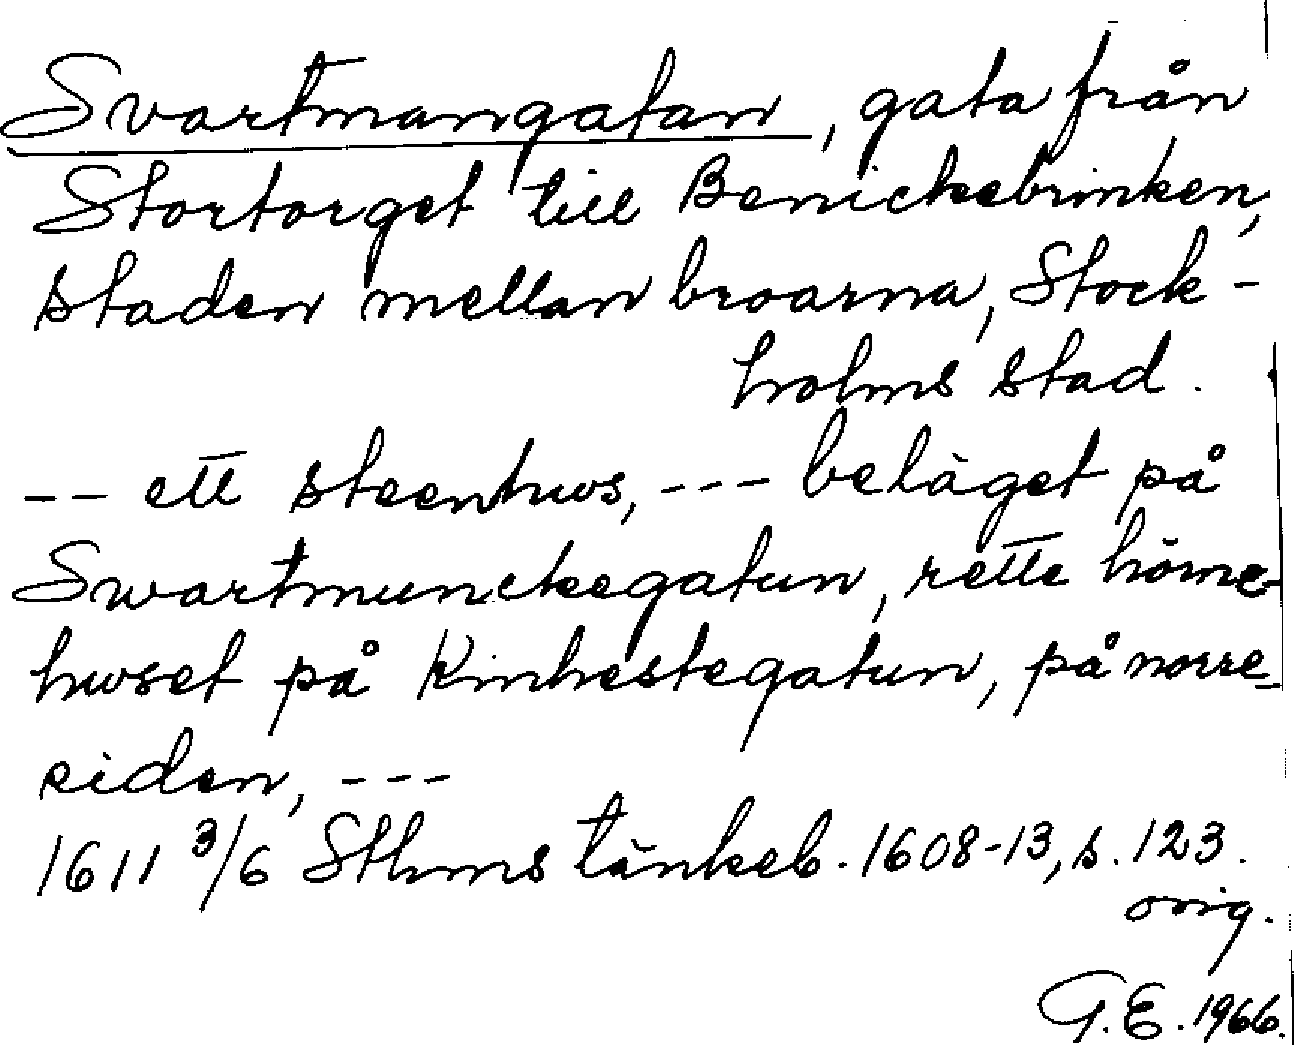 Svartmangatan, gata från
Stortorget till Benickebrinken,
staden mellan broarna, Stock-
holms stad.
-- ett steenhus, --- beläget på
Swartmunckegatun, rette hörne-
huset på Kinhestegatun, på norre-
siden, ---
1611 3/6 Sthms tänkeb. 1608-13, s. 123.
orig.
G.E. 1966.